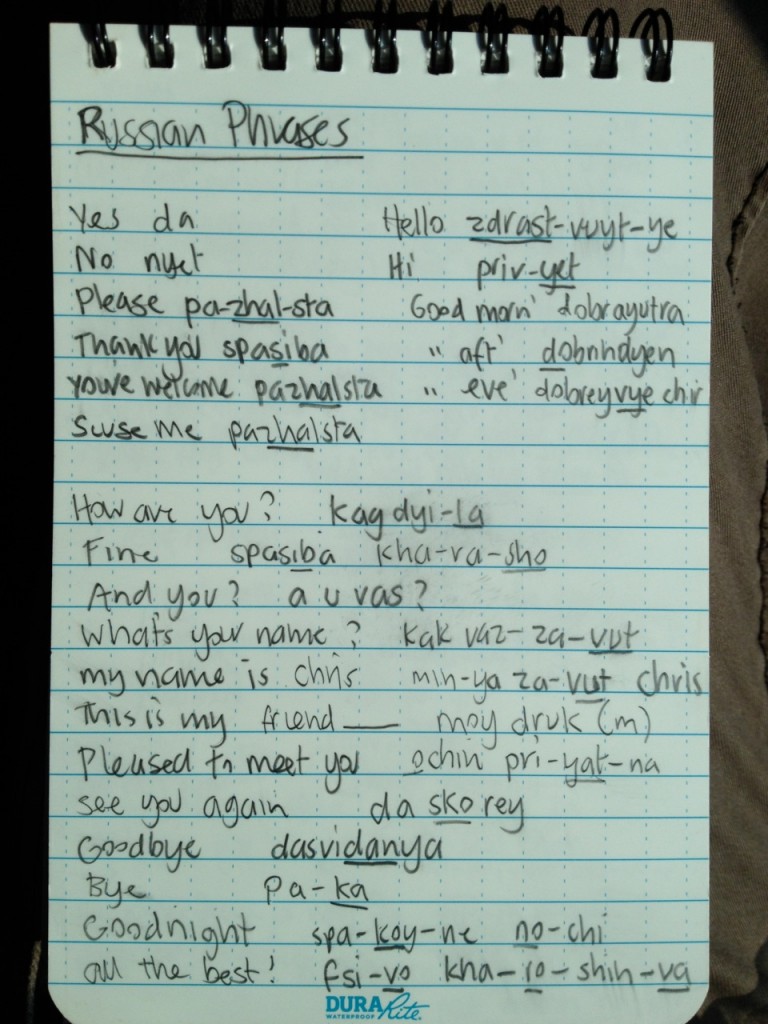 Russian Phrases
Yes da Hello zdrast-vuyt-ye
No nyet Hi priv-yet
Please pa-zhal-sta Good morn' dobrayutra
Thank you spasiba " aft' dobnhdyen
You're welcome pazhalsta " eve' dobreyvye chir
Swse me pazhalsta
How are you? kag dyi-la
Fine spasiba kha-ra-sho
And you? a u vas?
What's your name? kak vaz-za-vut
my name is chris min-ya za-vut chris
This is my friend ___ moy druk (m)
Pleased to meet you ochin pri-yat-na
see you again da skorey
Goodbye dasvidanya
Bye Pa-ka
Goodnight spa-koy-ne no-chi
all the best! fsi-vo kha-ro-shih-va
DURA Rite.
WATERPROOF